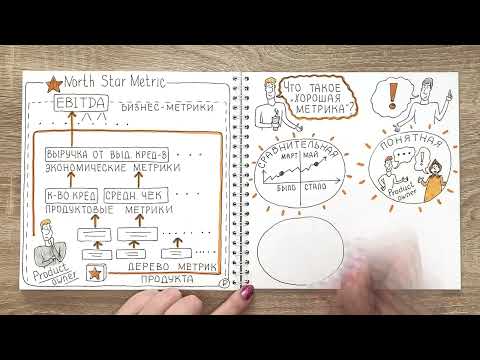 North Star Metric
EBITDA
БИЗНЕС-МЕТРИКИ
ВЫРУЧКА ОТ ВЫД. КРЕД-В
ЭКОНОМИЧЕСКИЕ МЕТРИКИ
К-ВО КРЕД
СРЕДН. ЧЕК
ПРОДУКТОВЫЕ МЕТРИКИ
Product owner
ДЕРЕВО МЕТРИК
ПРОДУКТА
ЧТО ТАКОЕ
"ХОРОШАЯ
МЕТРИКА"?
!
СРАВНИТЕЛЬНАЯ
МАРТ МАЙ
БЫЛО СТАЛО
ПОНЯТНАЯ
!
Product
owner